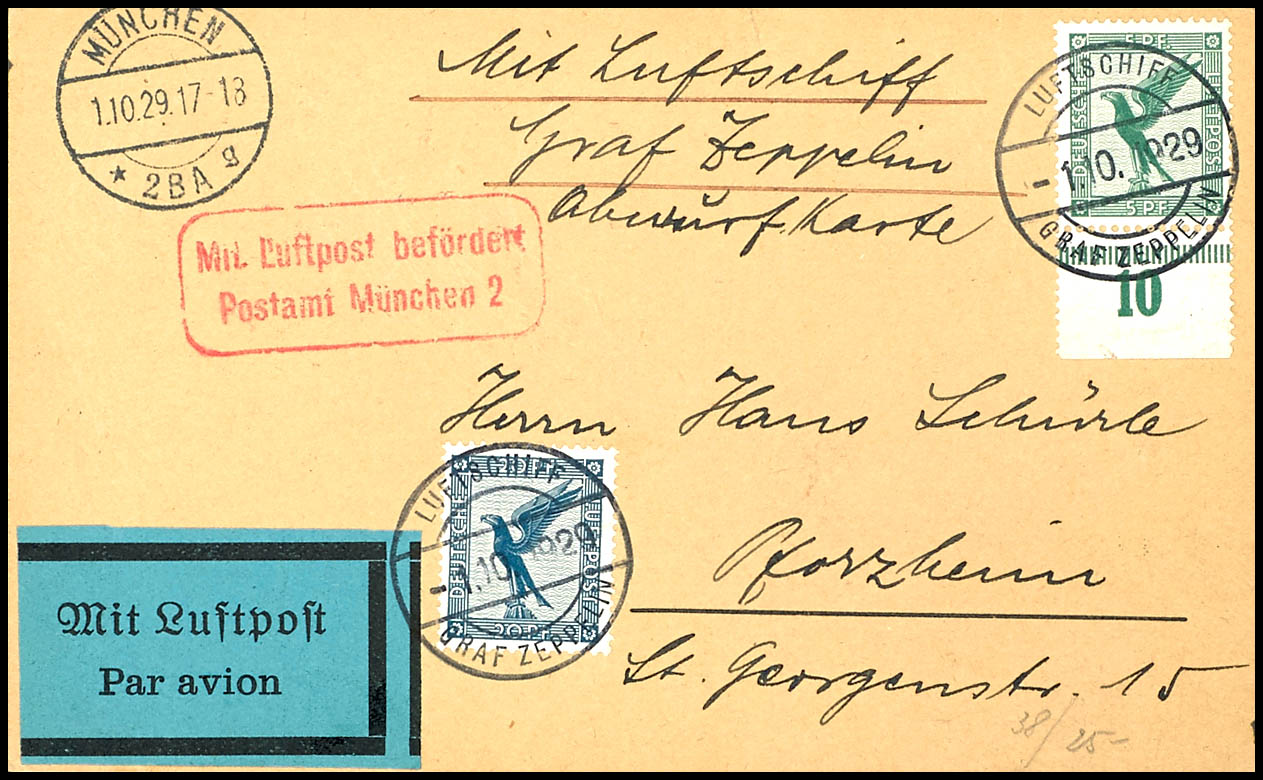 MÜNCHEN
1.10.29.17-18
* 2BA g
Mit Luftschiff
Graf Zeppelin
Abwurf Karte
5 PF.
DEUTSCHE LUFTPOST
5 PF.
LUFTSCHIFF
1.10.1929
GRAF ZEPPELIN
10
Mit Luftpost befördert
Postamt München 2
Herrn Hans Schürle
LUFTSCHIFF
DEUTSCHE LUFTPOST
1.10.1929
20 PF
GRAF ZEPPELIN
Pforzheim
St. Georgenstr. 15
Mit Luftpost
Par avion
38/25-